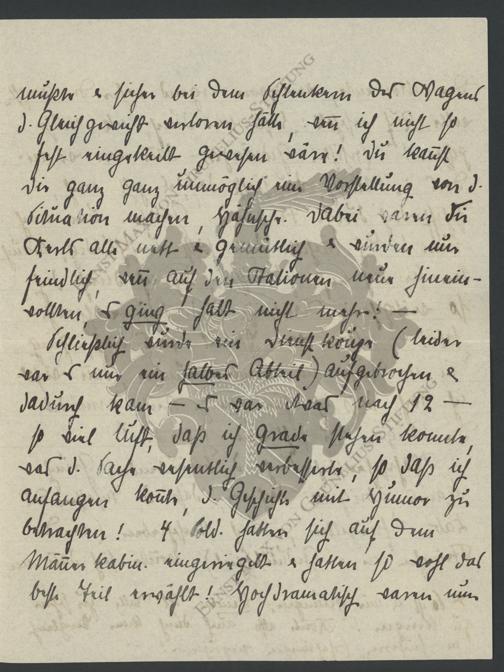 mußte & sicher bei dem Schlenkern des Wagens
d. Gleichgewicht verloren hätte, wen̄ ich nicht so
fest eingekeilt gewesen wäre! Du kan̄st
Dir ganz ganz unmöglich eine Vorstellung von d.
Situation machen, Dabei waren die
Kerls alle nett & gemütlich & wurden nur
feindlich, wen̄ auf den Stationen neue hinein-
wollten, & es ging halt nicht mehr! —
Schließlich wurde ein Dienstkoupé (leider
war es nur ein halbes Abteil) aufgebrochen &
dadurch kam — es war etwas nach 12 —
so viel Luft, daß ich grade stehen konnte,
was d. Sache wesentlich verbesserte, so daß ich
anfangen kon̄te, d. Geschichte mit Humor zu
betrachten! 4 Sold. hatten sich auf dem
Män̄erkabin. eingeriegelt & hatten so wohl das
beste Teil erwählt! Hochdramatisch waren nun
ERNST MAX VON GRUNELIUS-STIFTUNG